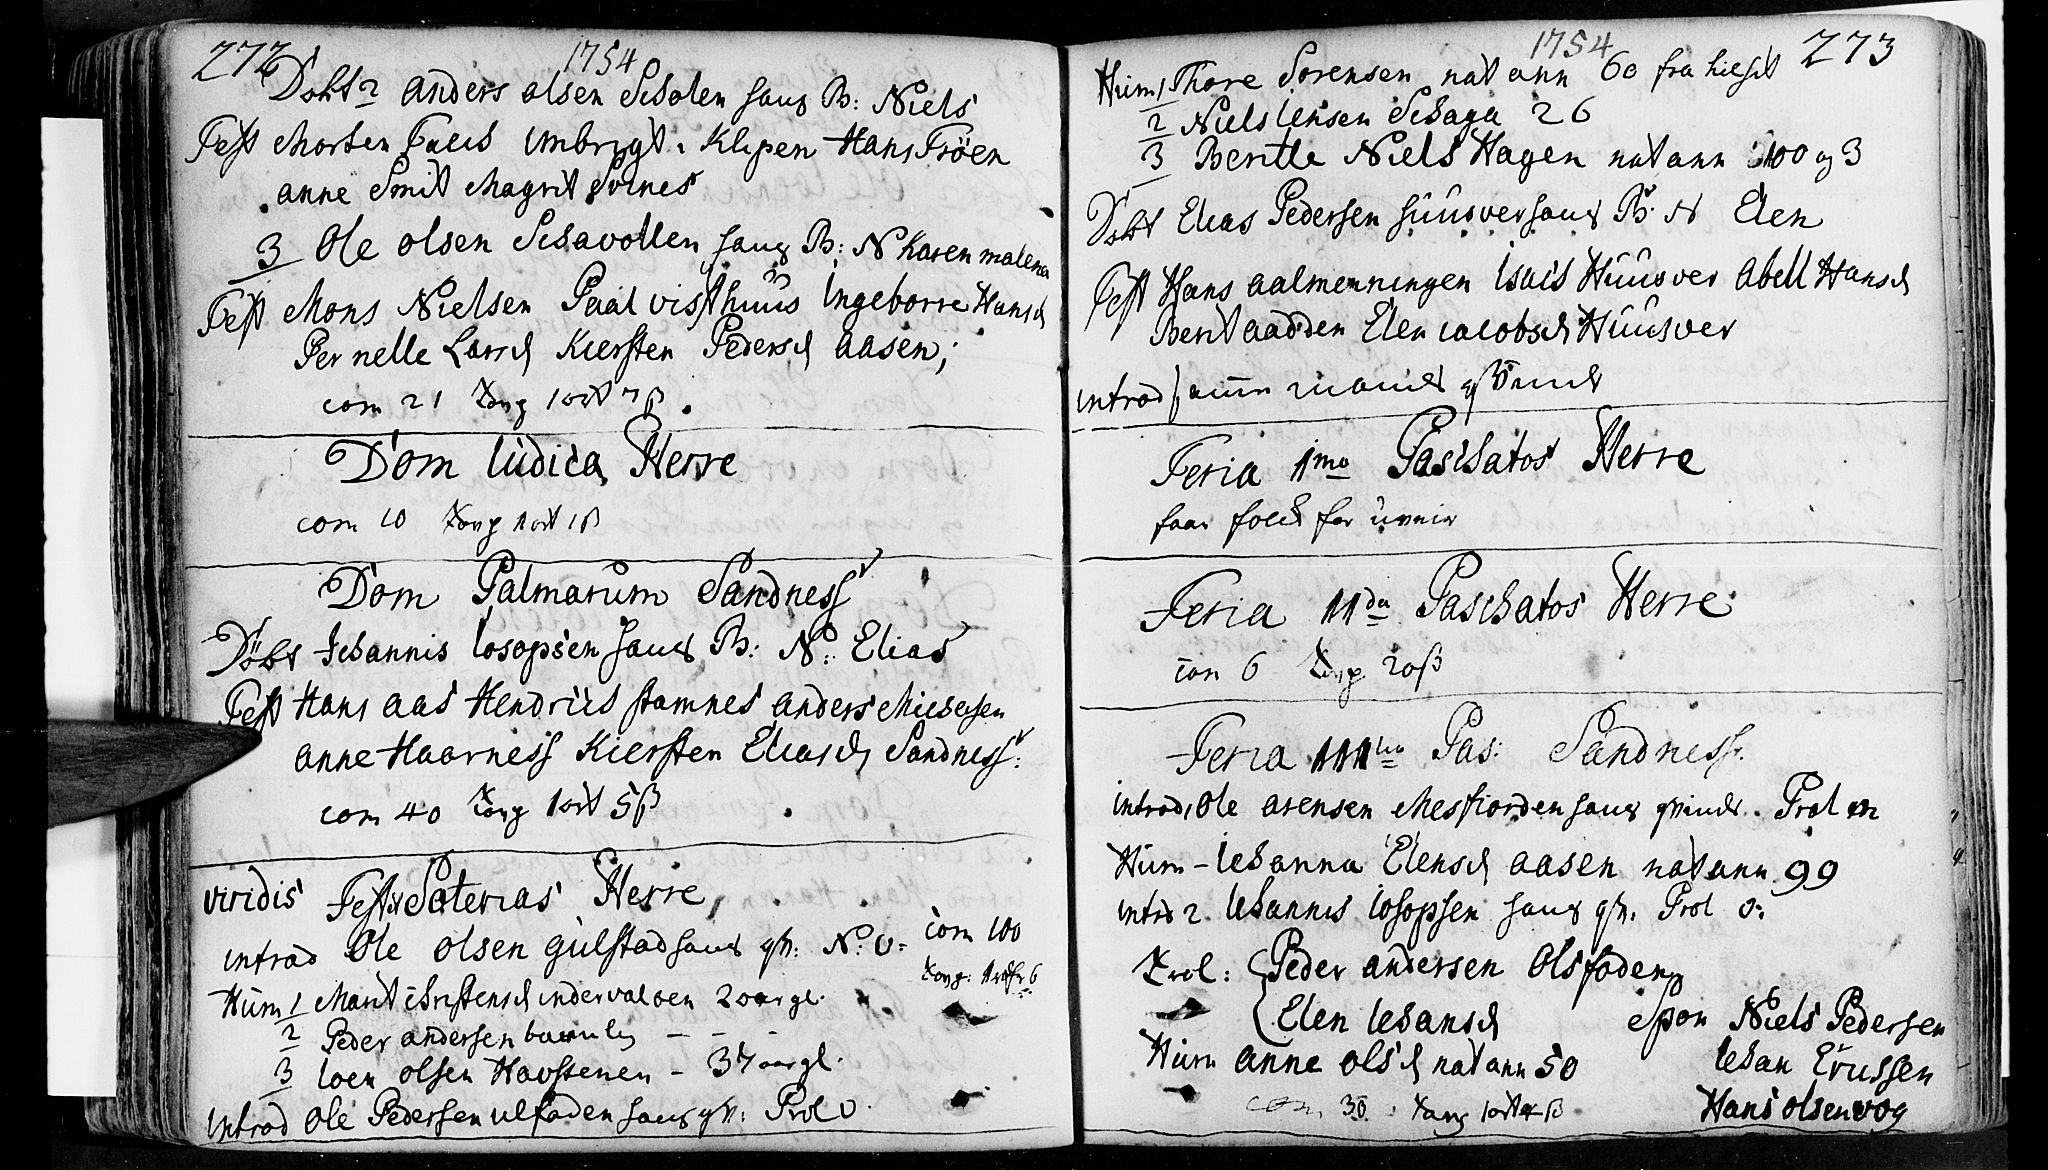 272 1754
Døbt 2 anders olsen Scholen hans B: Niels
Test Morten Falch Klipen Hans Trøen
anne Smit Magrit Svines
3 Ole olsen Schavollen hans B: N Karen malena
Test Mons Nielsen Paal visthuus Ingeborre Hansd
Pernelle Larsd Kiersten Pedersd aasen;
com 21 Tavg 1 ort 7 β
Dom Iudica Herre
com 10 Tavg 1 ort 1 β
Dom Palmarum Sandness
Døbt Iohannis Iosopsen hans B: N: Elias
Test Hans aas Hendrich stamnes anders Michelsen
anne Haarness Kiersten Eliasd Sandness:
com 40 Tavg 1 ort 5 β
viridis Fest Soterias Herre
introd Ole olsen gulstad hans qv: N: v:
com 100
Hum 1 Marit christensd indervaloen 2 aar gl.
2 Peder andersen
3 Ioen olsen Havstenen - 37 aar gl.
introd Ole Pedersen ulfaden hans qv: Prol v.
1754 273
Hum 1 Thore Sorensen nat ann 60 fra
2 Niels Iensen Schaga 26
3 Beritle Niels Hagen nat ann 100 og 3
Døbt Elias Pedersen huusver hans B: N Elen
Test Hans aalmenningen Isach Huusver abell Hansd
Berit aadden Elen iacobsd Huusver
introd
Feria 1mo Paschatos Herre
faar folch for uveir
Feria 11da Paschatos Herre
con 6 Tavg 20 β
Feria 111tia Pas: Sandness.
introd, Ole arensen Mesfiorden hans qvinde. Prol
Hum - Iohanna Elensd aasen nat ann 99
intro 2. Iohannis Iosopsen hans qv. Prol v:
Trol: Peder andersen Olsfaden
Elen Iohansd Spon Niels Pedersen
Hum anne olsd nat ann 50 Iohan Ericssen
com 30 Tavg 1 ort 4 β Hans olsen vog